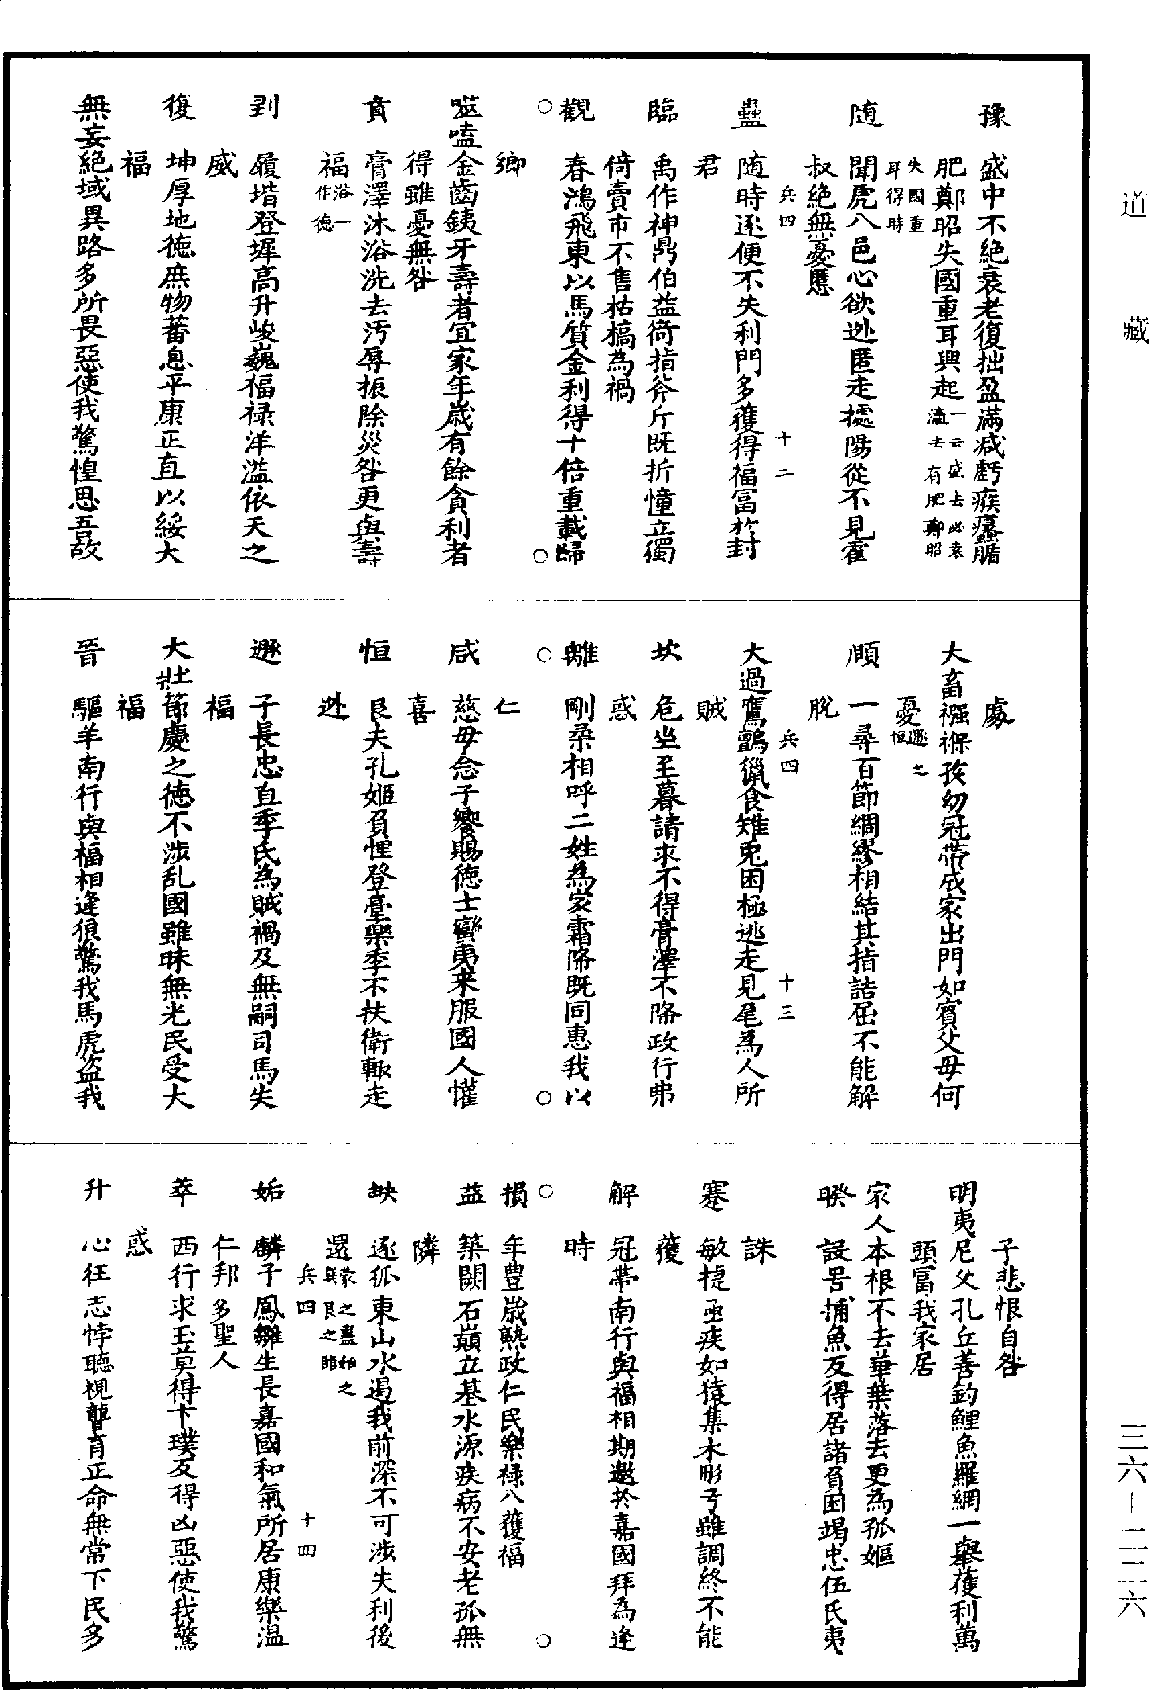 道藏
豫　盛中不絕衰老復拙盈滿減虧疾瘽腯
肥鄭昭失國重耳興起一云盛去必衰瀛去有肥鄭昭
失國重耳得時
随　聞虎入邑心欲逃匿走據陽從不見霍
叔絕無憂慝
兵四　十二
蠱　随時逐便不失利門多獲得福富於封
君
臨　禹作神鼎伯益銜指斧斤既折憧立獨
倚賣市不售枯槁為禍
觀　春鴻飛東以馬質金利得十倍重載歸
○　○
鄉
噬嗑金齒鉄牙壽者宜家年歲有餘貪利者
得雖憂無咎
賁　膏澤沐浴洗去汚辱振除災咎更與壽
福浴一作德
剥　履堦登墀高升峻巍福祿洋溢依天之
威
復　坤厚地德庶物蕃息平康正直以綏大
福
無妄絕域異路多所畏惡使我驚惶思吾故
處
大畜襁褓孩幼冠帶成家出門如賓父母何
憂遯之恒
頤　一尋百節綢繆相結其指詰屈不能解
脫
兵四　十三
大過鷹鸇獵食雉兎困極逃走見尾為人所
賊
坎　危坐至暮請求不得膏澤不降政行弗
惑
離　剛柔相呼二姓為家霜降既同惠我以
○　○
仁
咸　慈母念子饗賜德士蠻夷来服國人懽
喜
恒　艮夫孔姬負悝登臺欒季不扶衛輒走
逃
遯　子長忠直季氏為賊禍及無嗣司馬失
福
大壯節慶之德不涉乱國雖昧無光民受大
福
晉　驅羊南行與福相逢狼驚我馬虎盗我
子悲恨自咎
明夷尼父孔丘善釣鯉魚羅網一舉獲利萬
頭富我家居
家人本根不去華葉落去更為孤嫗
睽　設罟捕魚反得居諸貧困竭忠伍氏夷
誅
蹇　敏捷亟疾如猿集木彤弓雖調終不能
獲
解　冠帶南行與福相期邀於嘉國拜為逢
時
○　○
損　年豊歲熟政仁民樂祿入獲福
益　築闕石巔立基水源疾病不安老孤無
隣
缺　逐狐東山水遏我前深不可涉失利後
還蒙之蠱柏之與艮之離
兵四　十四
姤　麟子鳳雛生長嘉國和氣所居康樂温
仁邦多聖人
萃　西行求玉莫得卞璞反得凶惡使我驚
惑
升　心狂志悖聽視聾盲正命無常下民多
三六—二二六